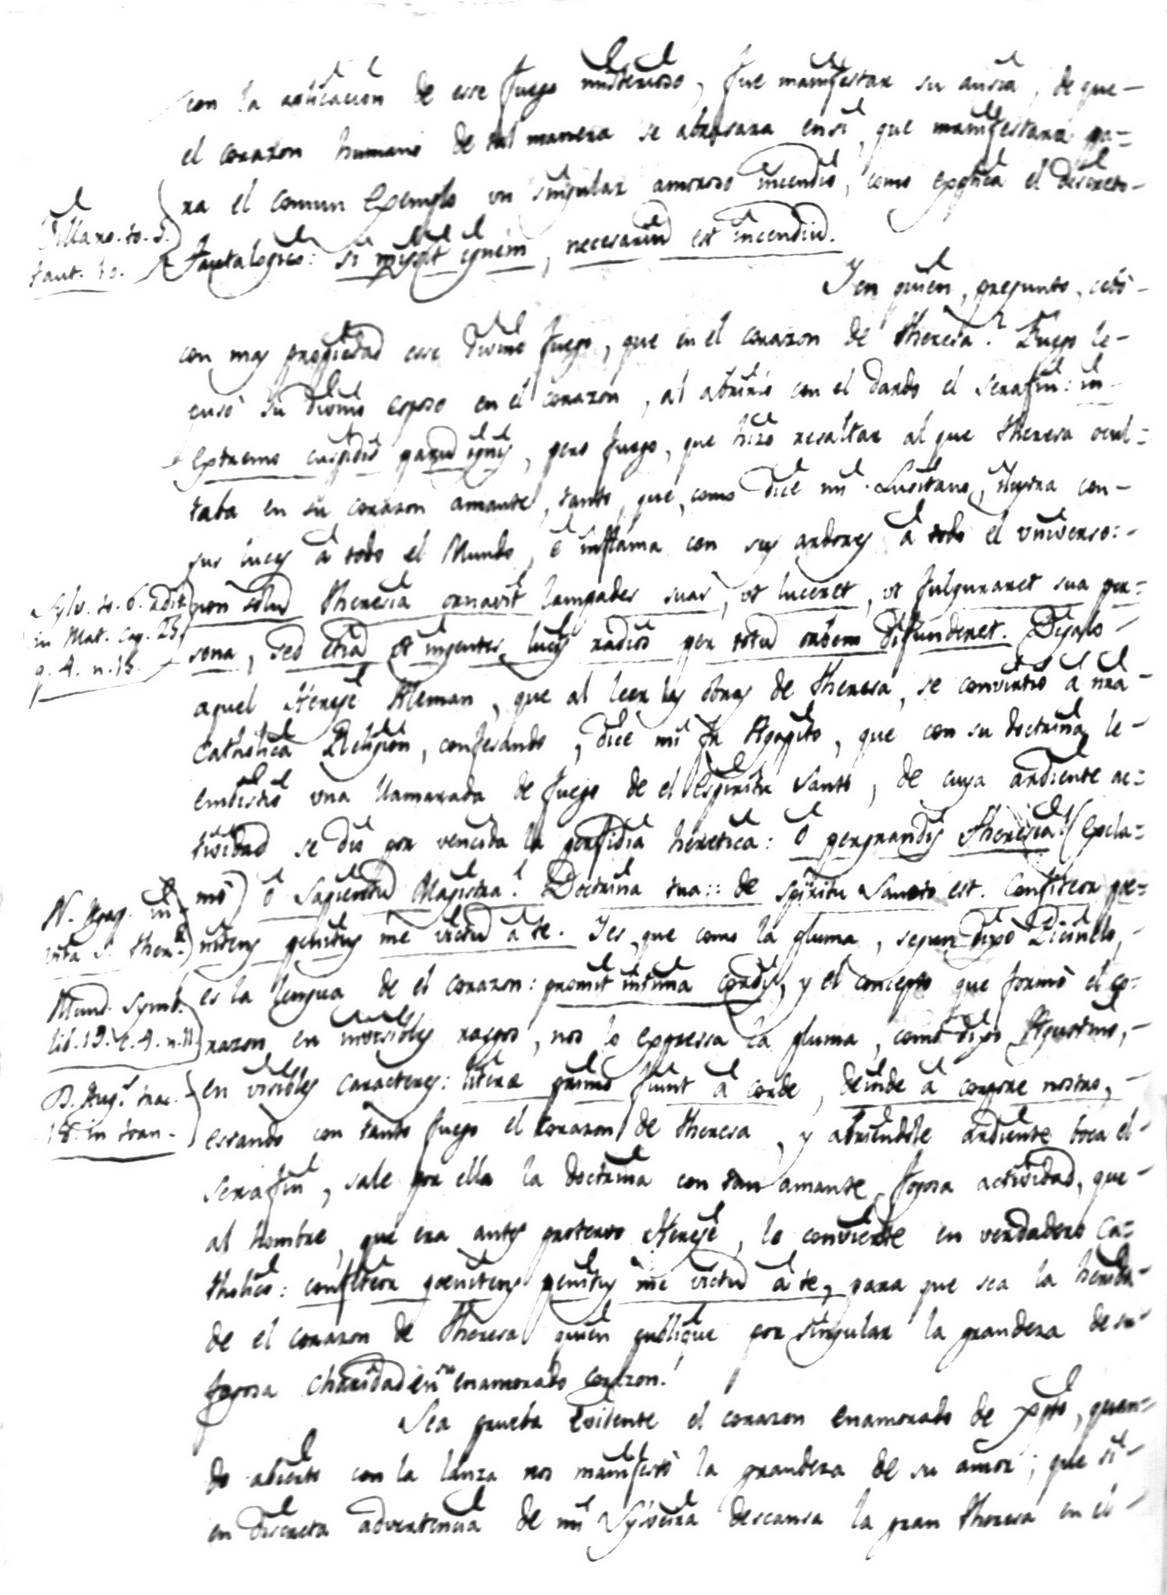 con la aplicacion de esse fuego misterioso, fue manifestar su ansia, de que-
el corazon humano de tal manera se abrasara en si, que manifestara pa=
ra el comun exemplo un singular amoroso incendio, como explica el discreto-
Villaro. to. 3.
taut. 10.
Tautalogico: si missit ignem, necesariũ est incendiũ.
Y en quien, pregunto, cebò-
con mas propiedad esse divino fuego, que en el corazon de Theresa? Fuego le-
puso su divino esposo en el corazon, al abrirlo con el dardo el serafin: in-
extremo cuspidis parũ ignis, pero fuego, que hizo resaltar al que Theresa ocul=
taba en su corazon amante, tanto, que, como dice mi Lusitano, ilustra con-
sus luces à todo el Mundo, è inflama con sus ardores à todo el universo:-
Sylv. to. 6. adit.
in Mat. cap. 25.
q. 4. n. 15.
non solũ Theresia ornavit lampades suas, ut luceret, ut fulguraret sua per=
sona, sed etiã ut ingentes lucis radios per totũ orbem difunderet. Digalo-
aquel Herege Aleman, que al leer las obras de Theresa, se convirtio à nra-
Catholica Religion, confesando, dice mi fr Agapito, que con su doctrina le-
embistio una llamarada de fuego de el Espiritu Santo, de cuya ardiente ac=
tividad se dio por vencida la perfidia heretica: ò pergrandis Theresia! (excla=
N. Agap. in
vita S. Ther.
mò) ò Sapientũ Magistra! Doctrina tua:: de Spiritu Sancto est. Confiteor poe=
nitens penitus me victũ à te. Y es que como la pluma, segun dixo Picinelo,-
Mund. Symb.
lib. 19. c. 4. n. 11.
es la lengua de el corazon: promit intima cordis, y el concepto que formò el co=
razon en invisibles rasgos, nos lo expressa la pluma, como dixo Agustino,-
D. Aug.t trac.
18. in Ioan.
en visibles caracteres: literæ primò fiunt à corde, deinde à corpore nostro,-
estando con tanto fuego el corazon de Theresa, y abriendole ardiente boca el-
serafin, sale por ella la doctrina con tan amante, fogosa actividad, que-
al hombre, que era antes protervo Herege, lo convierte en verdadero Ca=
tholico: confiteor poenitens penitus me victũ à te, para que sea la herida-
de el corazon de Theresa quien publique por singular la grandeza de su-
fogosa charidad en su enamorado corazon!
Sea prueba evidente el corazon enamorado de Xpto, quan=
do abierto con la lanza nos manifestò la grandeza de su amor; que si-
en discreta advertencia de mi Sylveira descansa la gran Theresa en el-